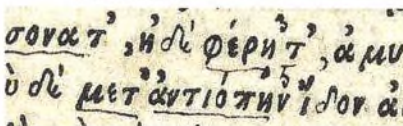 σονατ᾽, ἠδὲ φέρητ᾽, ἀμυ
ὺ δὲ μετ᾽ ἀντιόπην ἴδον ἀ